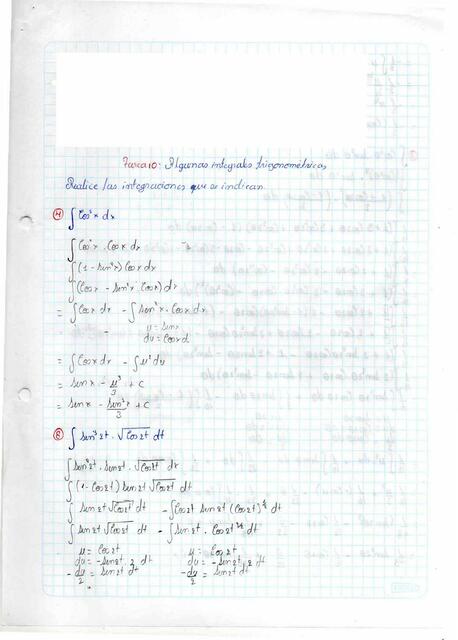 Tarea 10: Algunas integrales trigonométricas
Realice las integraciones que se indican.
④ ∫ cos³x dx
∫ cos²x · cos x dx
∫ (1 - sin²x) cos x dx
∫ (cos x - sin²x cos x) dx
= ∫ cos x dx - ∫ sin²x · cos x dx
u = sin x
du = cos x d
= ∫ cos x dx - ∫ u² du
= sin x - u³/3 + c
= sin x - sin³x/3 + c
⑧ ∫ sin³ 2t · √cos 2t dt
∫ sin² 2t · sin 2t · √cos 2t dt
∫ (1 - cos 2t) sin 2t √cos 2t dt
∫ sin 2t √cos 2t dt - ∫ cos 2t sin 2t (cos 2t)^½ dt
∫ sin 2t √cos 2t dt - ∫ sin 2t · cos 2t dt
u = cos 2t u = cos 2t
du = -sin 2t 2 dt du = -sin 2t 2 dt
-du/2 = sin 2t dt -du/2 = sin 2t dt